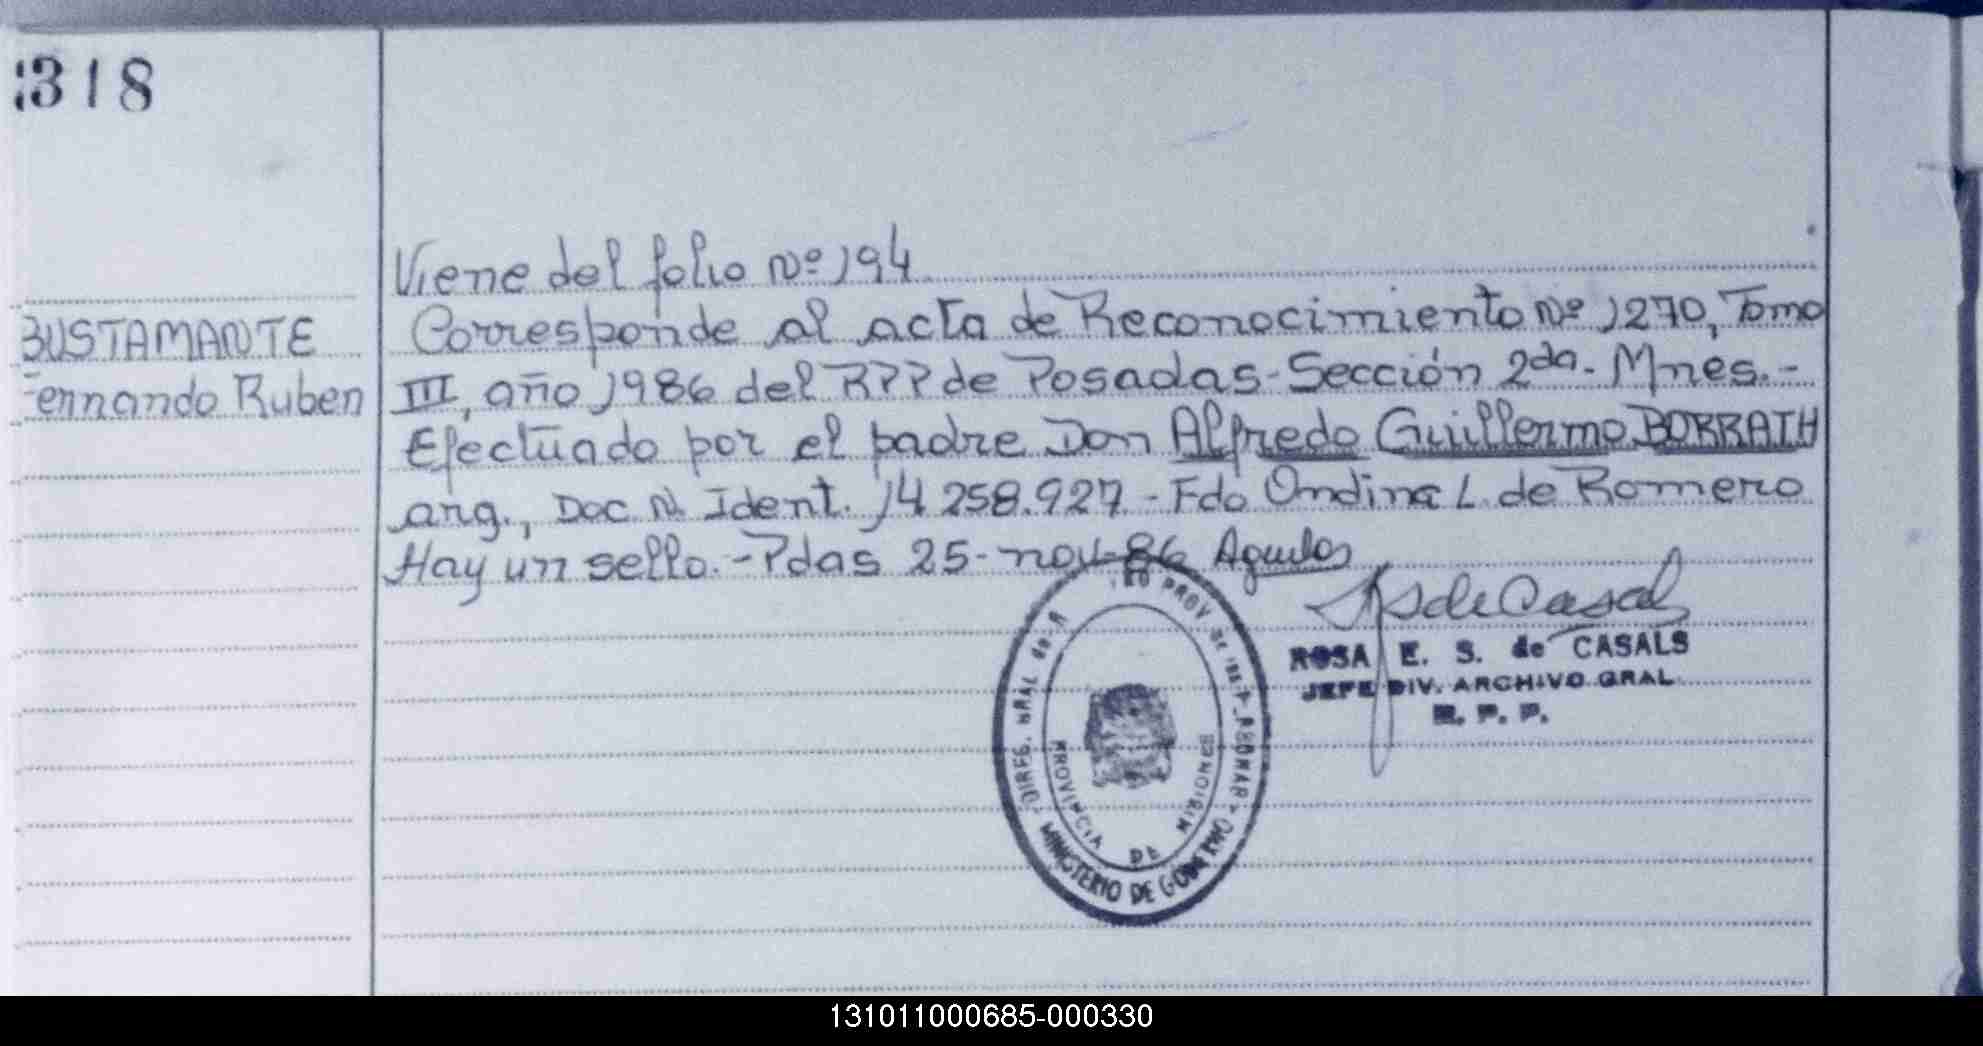 318
Viene del folio Nº 194
BUSTAMANTE
Fernando Ruben
Corresponde al acta de Reconocimiento Nº 1270, Tomo
III, año 1986 del RPP de Posadas - Sección 2da. Mnes.-
Efectuado por el padre Don Alfredo Guillermo BORRATH
arg., Doc N. Ident. 14 258.927 - Fdo Ondina L. de Romero
Hay un sello. - Pdas 25-nov-86
S de Casals
ROSA E. S. de CASALS
JEFE DIV. ARCHIVO GRAL
R. P. P.
PROVINCIA DE MISIONES
MINISTERIO DE GOBIERNO
131011000685-000330